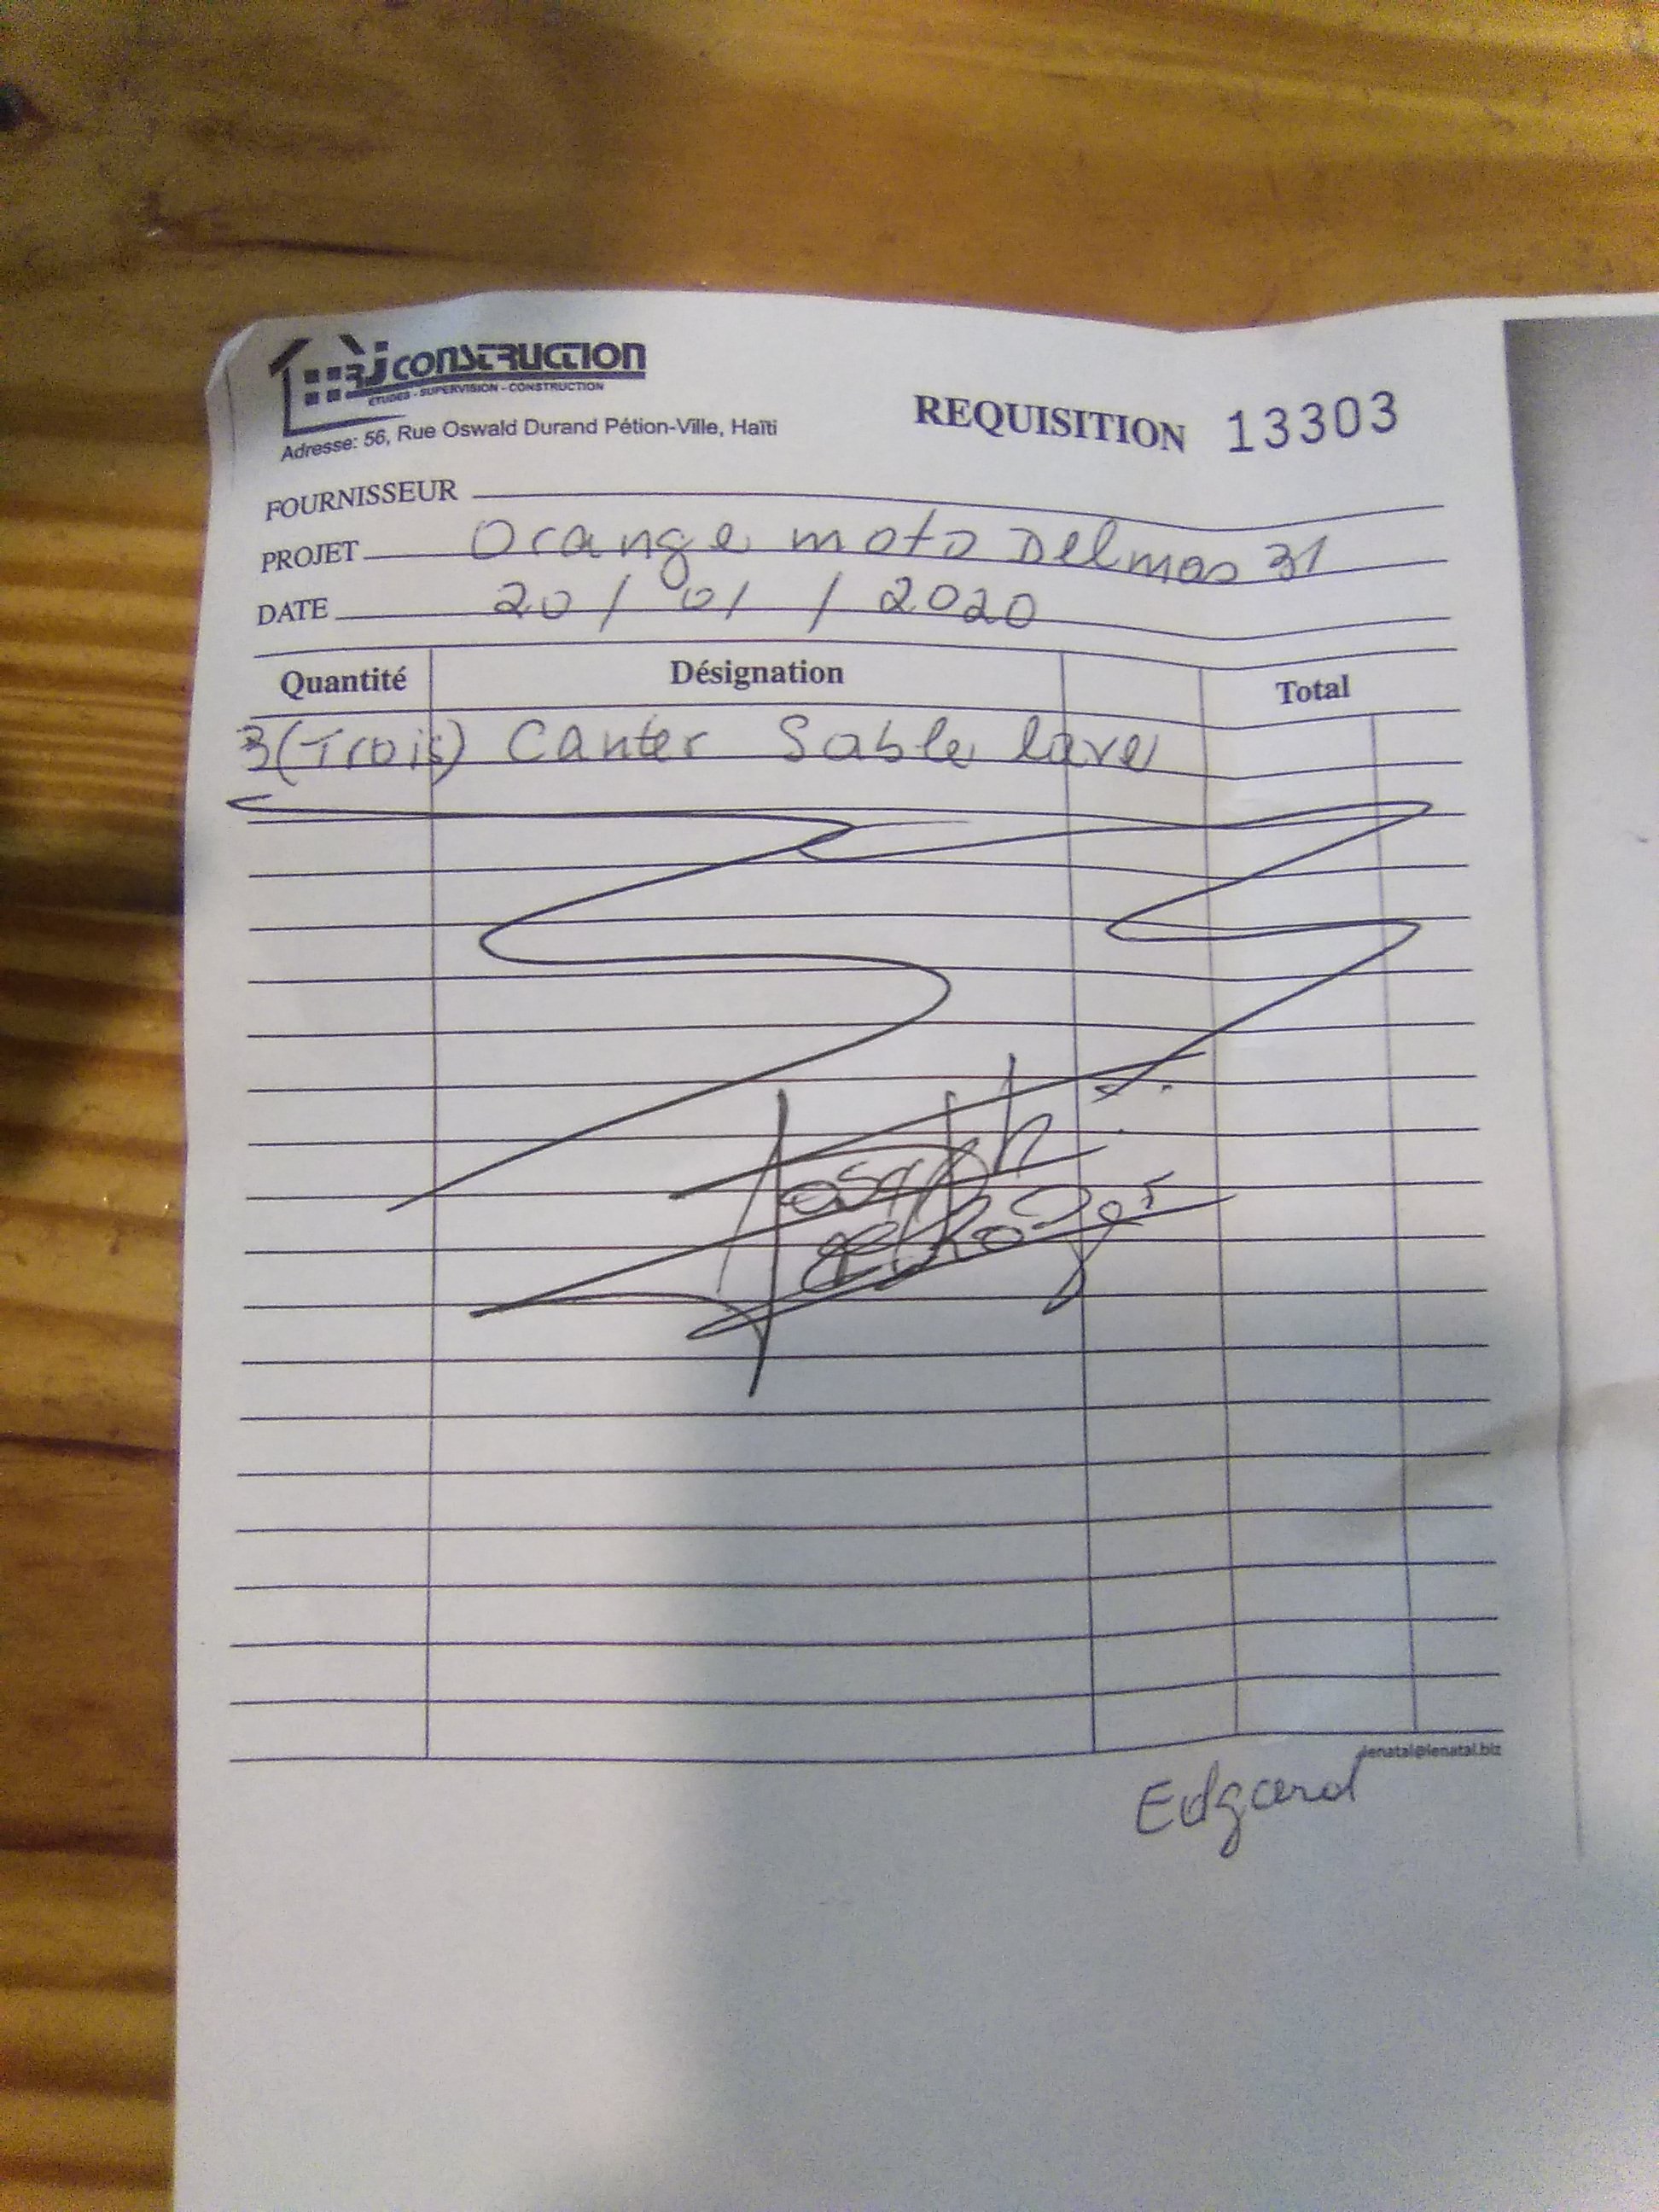 RJ CONSTRUCTION
ETUDES - SUPERVISION - CONSTRUCTION
Adresse: 56, Rue Oswald Durand Pétion-Ville, Haïti
REQUISITION 13303
FOURNISSEUR
PROJET Orange moto Delmas 31
DATE 20/01/2020
Quantité Désignation Total
3 (Trois) Canter Sable lave
Joseph
lenatal@lenatal.biz
Edgard